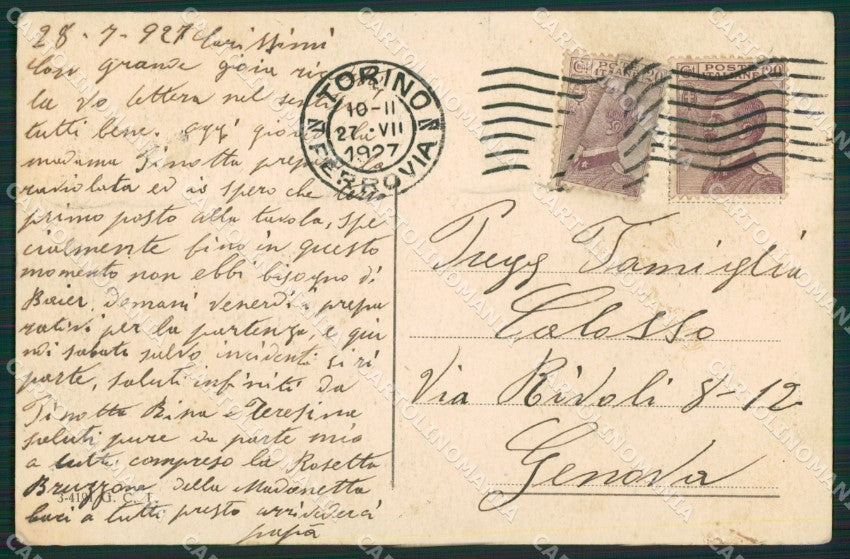 28-7-927 Carissimi
Con grande gioia ric
la Vo lettera nel senti
tutti bene. Oggi gio
madama Tinotta prepa
raviolata ed io spero che
primo posto alla tavola, spe
cialmente fino in questo
momento non ebbi bisogno di
Baier, domani venerdi prepa
rativi per la partenza, e quin
di sabato salvo incidenti si ri
parte, saluti infiniti da
Tinotta Bina e Teresina
saluti pure da parte mio
a tutti compreso la Rosetta
Bruzzone della Madonetta
baci a tutti presto arrivederci
papa
3-4191 G. C. T.
TORINO
10-11
27·VII
1927
FERROVIA
POSTE ITALIANE 20
POSTE ITALIANE 20
Pregg Famiglia
Colosso
Via Rivoli 8-12
Genova
CARTOLINOMANIA